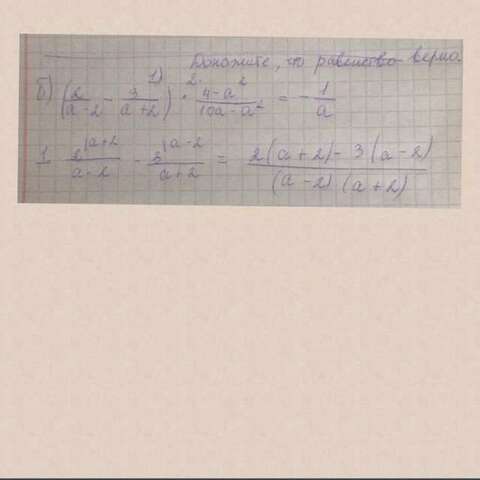 Докажите, что равенство верно.
1) 2.
б) (2/(a-2) - 3/(a+2)) · (4-a²)/(10a-a²) = -1/a
1. 2^(|a+2)/(a-2) - 3^(|a-2)/(a+2) = (2(a+2)-3(a-2))/((a-2)(a+2))